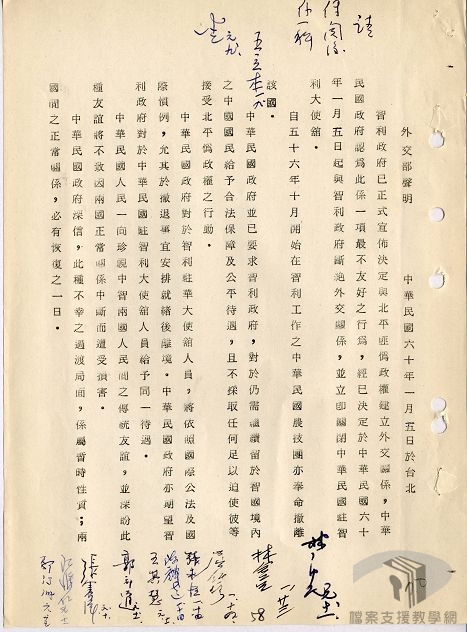 外交部聲明　中華民國六十年一月五日於台北
智利政府已正式宣佈決定與北平匪偽政權建立外交關係，中華
民國政府認為此係一項最不友好之行為，經已決定於中華民國六十
年一月五日起與智利政府斷絕外交關係，並立即關閉中華民國駐智
利大使館。
自五十六年十月開始在智利工作之中華民國農技團亦奉命撤離
該國。
中華民國政府並已要求智利政府，對於仍需繼續留於智國境內
之中國國民給予合法保障及公平待遇，且不採取任何足以迫使彼等
接受北平偽政權之行動。
中華民國政府對於智利駐華大使館人員，將依照國際公法及國
際慣例，尤其於撤退事宜安排就緒後離境。中華民國政府亦期望智
利政府對於中華民國駐智利大使館人員給予同一待遇。
中華民國人民一向珍視中智兩國人民間之傳統友誼，並深盼此
種友誼將不致因兩國正常關係中斷而遭受損害。
中華民國政府深信，此種不幸之過渡局面，係屬暫時性質；兩
國間之正常關係，必有恢復之一日。
請
檔案支援教學網